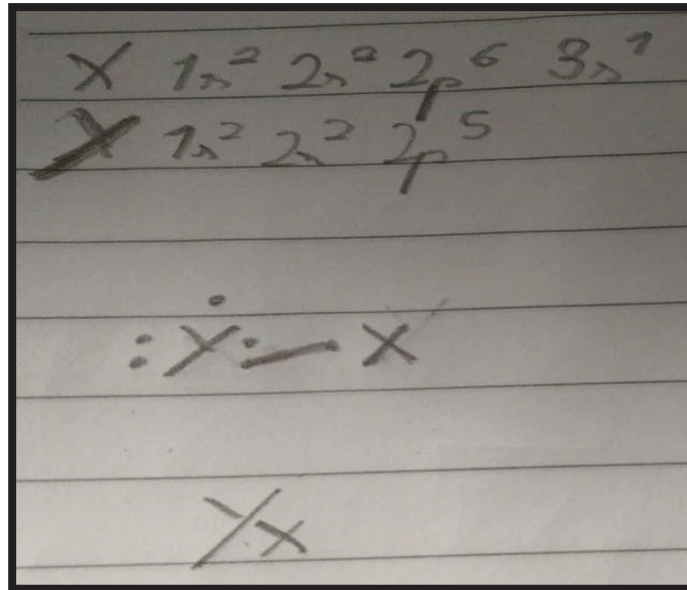 X 1s² 2s² 2p⁶ 3s¹
Y 1s² 2s² 2p⁵
:Y:— X
YX